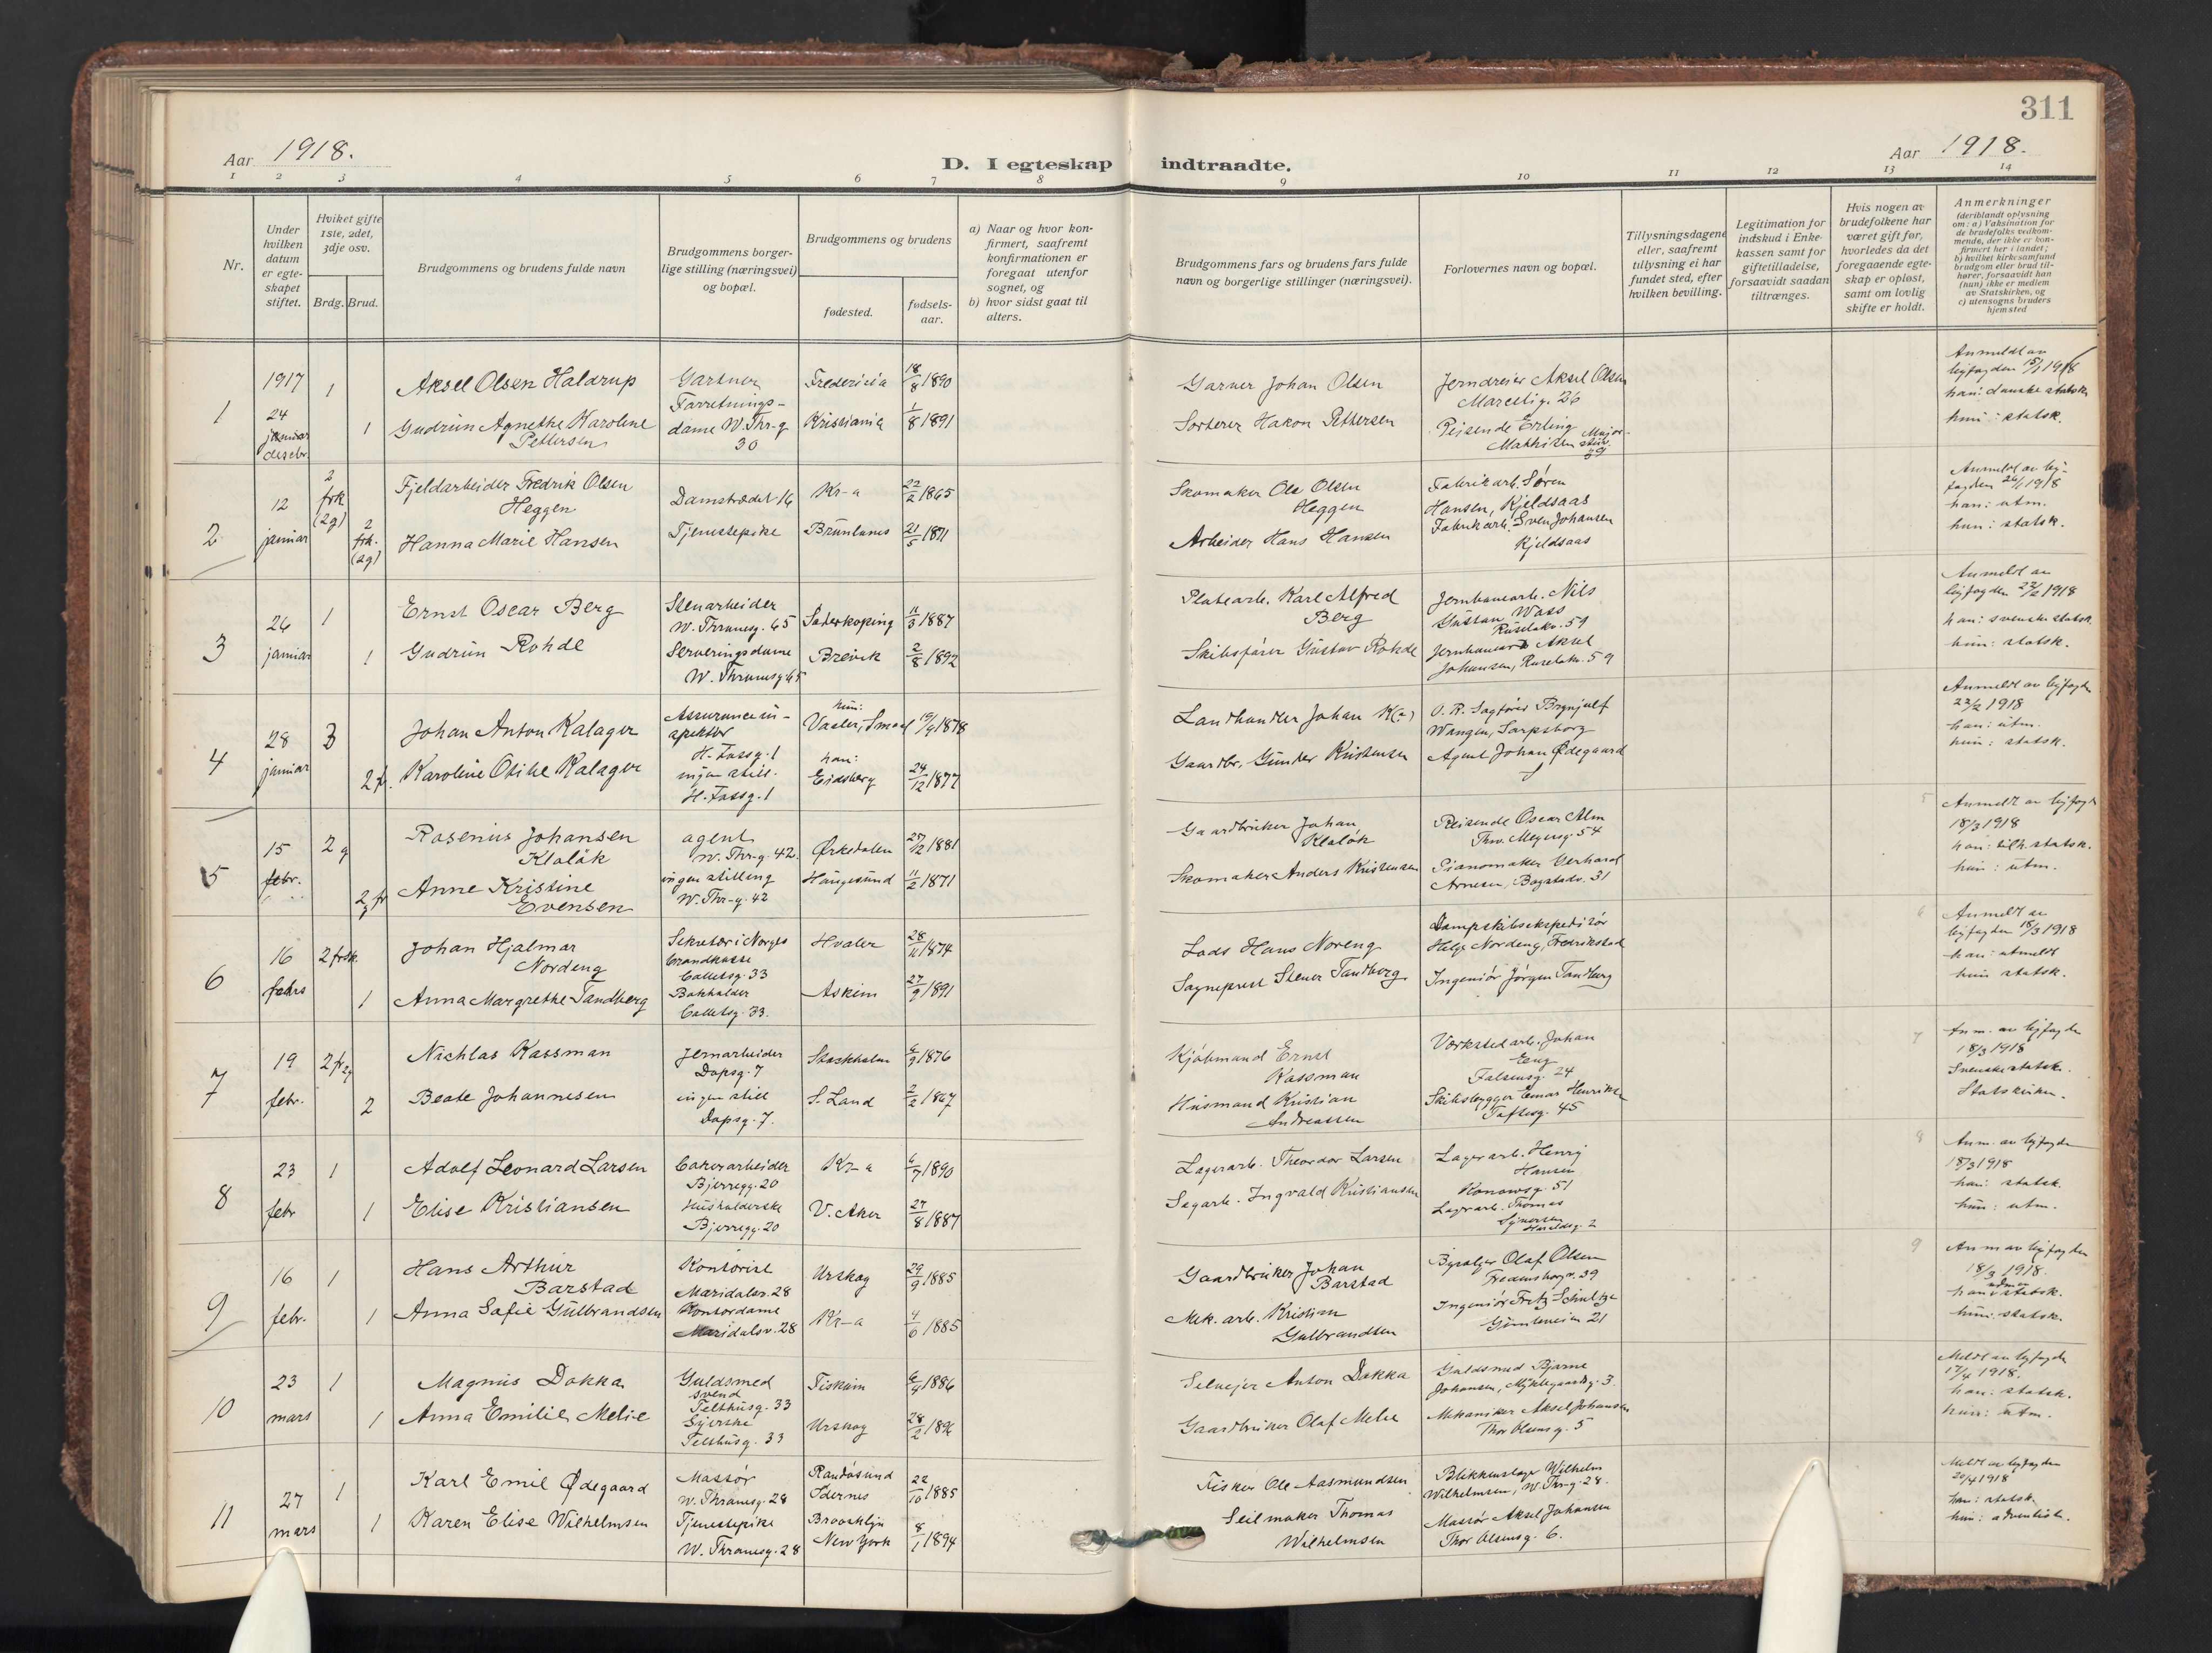 311
Aar 1918.
D. I egteskap indtraadte.
Aar 1918.
1 2 3 4 5 6 7 8 9 10 11 12 13 14
Nr.
Under hvilken datum er egteskapet stiftet.
Hviket gifte 1ste, 2det, 3dje osv.
Brdg. Brud.
Brudgommens og brudens fulde navn
Brudgommens borgerlige stilling (næringsvei) og bopæl.
Brudgommens og brudens
fødested.
fødselsaar.
a) Naar og hvor konfirmert, saafremt konfirmationen er foregaat utenfor sognet, og
b) hvor sidst gaat til alters.
Brudgommens fars og brudens fars fulde navn og borgerlige stillinger (næringsvei).
Forlovernes navn og bopæl.
Tillysningsdagene eller, saafremt tillysning ei har fundet sted, efter hvilken bevilling.
Legitimation for indskud i Enkekassen samt for giftetilladelse, forsaavidt saadan tiltrænges.
Hvis nogen av brudefolkene har været gift før, hvorledes da det foregaaende egteskap er opløst, samt om lovlig skifte er holdt.
Anmerkninger
(deriblandt oplysning om: a) Vaksination for de brudefolks vedkommende, der ikke er konfirmert her i landet;
b) hvilket kirkesamfund brudgom eller brud tilhører, forsaavidt han (hun) ikke er medlem av Statskirken, og
c) utensogns bruders hjemsted
1
1917
24
januar
desebr.
1
Aksel Olsen Haldrup
Gartner
Fredericia
18/8 1890
Garver Johan Olsen
Jerndreier Aksel Olsen
26
Anmeldt av
byfogden 15/1 1918
han: danske statsk.
1
Gudrun Agnethe Karoline
Pettersen
Forretnings-
dame W. Thr-g
30
Kristiania
1/8 1891
Sorterer Hakon Pettersen
Reisende Erling
Mathisen
hun: statsk.
2
12
januar
2
frk
(2g)
Fjeldarbeider Fredrik Olsen
Heggen
Damstrædet 16
Kr-a
22/2 1865
Skomaker Ole Olsen
Heggen
Fabrikarb. Søren
Hansen, Kjeldsaas
Anmeldt av by-
fogden 26/1 1918
han: utm.
2
frk.
(2g)
Hanna Marie Hansen
Tjenestepike
Brunlanes
21/5 1871
Arbeider Hans Hansen
Fabrikarb. Sven Johansen
Kjeldsaas
hun: statsk.
3
26
januar
1
Ernst Oscar Berg
Stenarbeider
W. Thranesg. 65
Søderkøping
11/3 1887
Platearb. Karl Alfred
Berg
Jernbanearb. Nils
Gustav Wass
Ruseløkv. 59
Anmeldt av
byfogden 22/2 1918
han: svenske statsk.
1
Gudrun Rohde
Serveringsdame
W. Thranesg 65
Brevik
2/8 1892
Skibsfører Gustav Rohde
Aksel
Johansen, Ruseløkv. 59
hun: statsk.
4
28
januar
3
Johan Anton Kalager
Assurancein-
spektør
H. Fossg. 1
hun:
19/9 1878
Landhandler Johan K(?)
O. R. Sagfører Brynjulf
Wangen, Sarpsborg
Anmeldt av byfogden
22/2 1918
han: utm.
2 f.
Karoline Otilie Kalager
ingen still.
H. Fossg. 1
han:
Eidsberg
24/12 1877
Gaardbr. Gunder Kristensen
Agent Johan Ødegaard
hun: statsk.
5
15
febr.
2 g
Rosenius Johansen
Kloløk
agent
W. Thr-g. 42.
Ørkedalen
27/12 1881
Gaardbruker Johan
Kloløk
Reisende Oscar Alm
Thv. Meyersg. 54
5
Anmeldt av byfogden
18/3 1918
statsk.
2 fr
g
Anne Kristine
Evensen
ingen stilling
W. Thr-g. 42
Haugesund
11/2 1871
Skomaker Anders Kristensen
Pianomaker Gerhard
Arnesen, Bogstadv. 31
hun: utm.
6
16
2 frsk.
Johan Hjalmar
Nordeng
Sekretær i Norges
brandkasse
Colletsg. 33
Hvaler
28/11 1874
Lods Hans Noreng
Dampskibsekspeditør
Helge Nordeng, Fredrikstad
6
Anmeldt av
byfogden 18/3 1918
han: utmeldt
1
Anna Margrethe Tandberg
Bokholder
Colletsg. 33.
Askim
27/9 1891
Sogneprest Stener Tandberg
Ingeniør Jørgen Tandberg
hun statsk.
7
19
febr.
2 fr
2g
Nichlas Kassman
Jernarbeider
Dopsg. 7
Stockholm
6/9 1876
Kjøbmand Ernst
Kassman
Værkstedarb. Johan
Eng
Falsensg. 24
7
Anm. av byfogden
18/3 1918
Svenske statsk.
2
Beate Johannesen
ingen still
Dopsg. 7.
S. Land
2/2 1867
Husmand Kristian
Andreassen
Skibsbygger Einar Henriksen
Toftesg. 45
Statskirken.
8
23
febr
1
Adolf Leonard Larsen
Bjerregg. 20
Kr-a
6/7 1890
Lagerarb. Theordor Larsen
Lagerarb. Henry
Hansen
Konowsg. 51
8
Anm. av byfogden
18/3 1918
han: statsk.
1
Elise Kristiansen
Husholderske
Bjerregg. 20
V. Aker
27/8 1887
Sagarb. Ingvald Kristiansen
Lagerarb. Thomas
hun: utm.
9
16
febr.
1
Hans Arthur
Barstad
Kontorist
Maridalsv. 28
Urskog
29/9 1885
Gaardbruker Johan
Barstad
Byselger Olaf Olsen
Fredensborgv. 39
9
Anm av byfogden
18/3 1918.
1
Anna Sofie Gulbrandsen
Kontordame
Maridalsv. 28
Kr-a
4/6 1885
Mek. arb. Kristian
Gulbrandsen
Ingeniør Fritz Schultze
21
hun: statsk.
10
23
mars
1
Magnus Dokka
Guldsmed
svend
Telthusg. 33
Fiskum
1886
Selveier Anton Dokka
Guldsmed Bjarne
Johansen, 3.
Meldt av byfogden
17/4 1918.
han: statsk.
1
Anna Emilie Melie
Syerske
Telthusg. 33
Urskog
28/2
Gaardbruker Olaf Melie
Mekaniker Aksel Johansen
Thor Olsensg. 5
hun: utm.
11
27
mars
1
Karl Emil Ødegaard
Massør
W. Thranesg. 28
Randøsund
22/10 1885
Fisker Ole Aasmundsen
Blikkenslager Wilhelm
Wilhelmsen, W. Thr-g. 28.
Meldt av byfogden
20/4 1918
han: statsk.
1
Karen Elise Wilhelmsen
Tjenestepike
W. Thranesg. 28
Brooklyn
New York
8/1 1894
Seilmaker Thomas
Wilhelmsen
Massør Aksel Johansen
Thor Olsensg. 6.
hun: adventist.